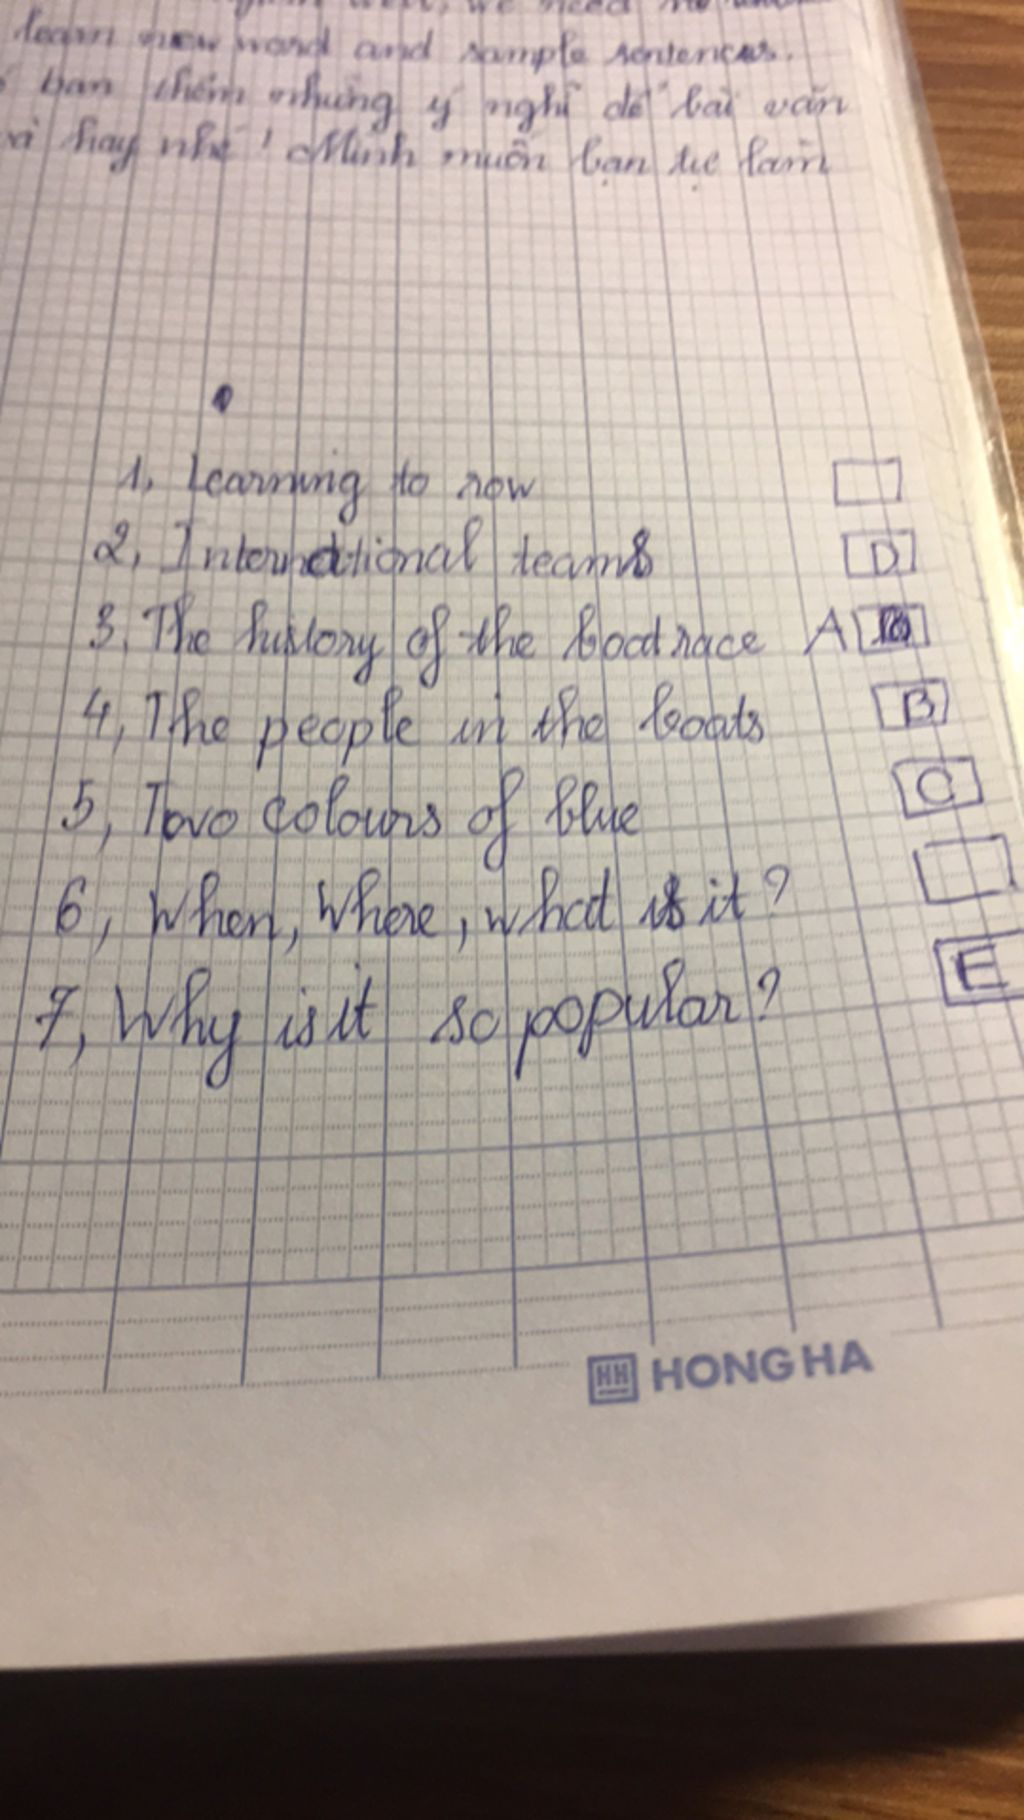 we need
learn new word and sample sentences.
bạn thêm những ý nghĩ để bài văn
hay nhé! Mình muốn bạn tự làm
1, Learning to row
2, International teams D
3, The history of the boat race A
4, The people in the boats B
5, Two colours of blue C
6, When, Where, what is it?
7, Why is it so popular? E
HH HONG HA